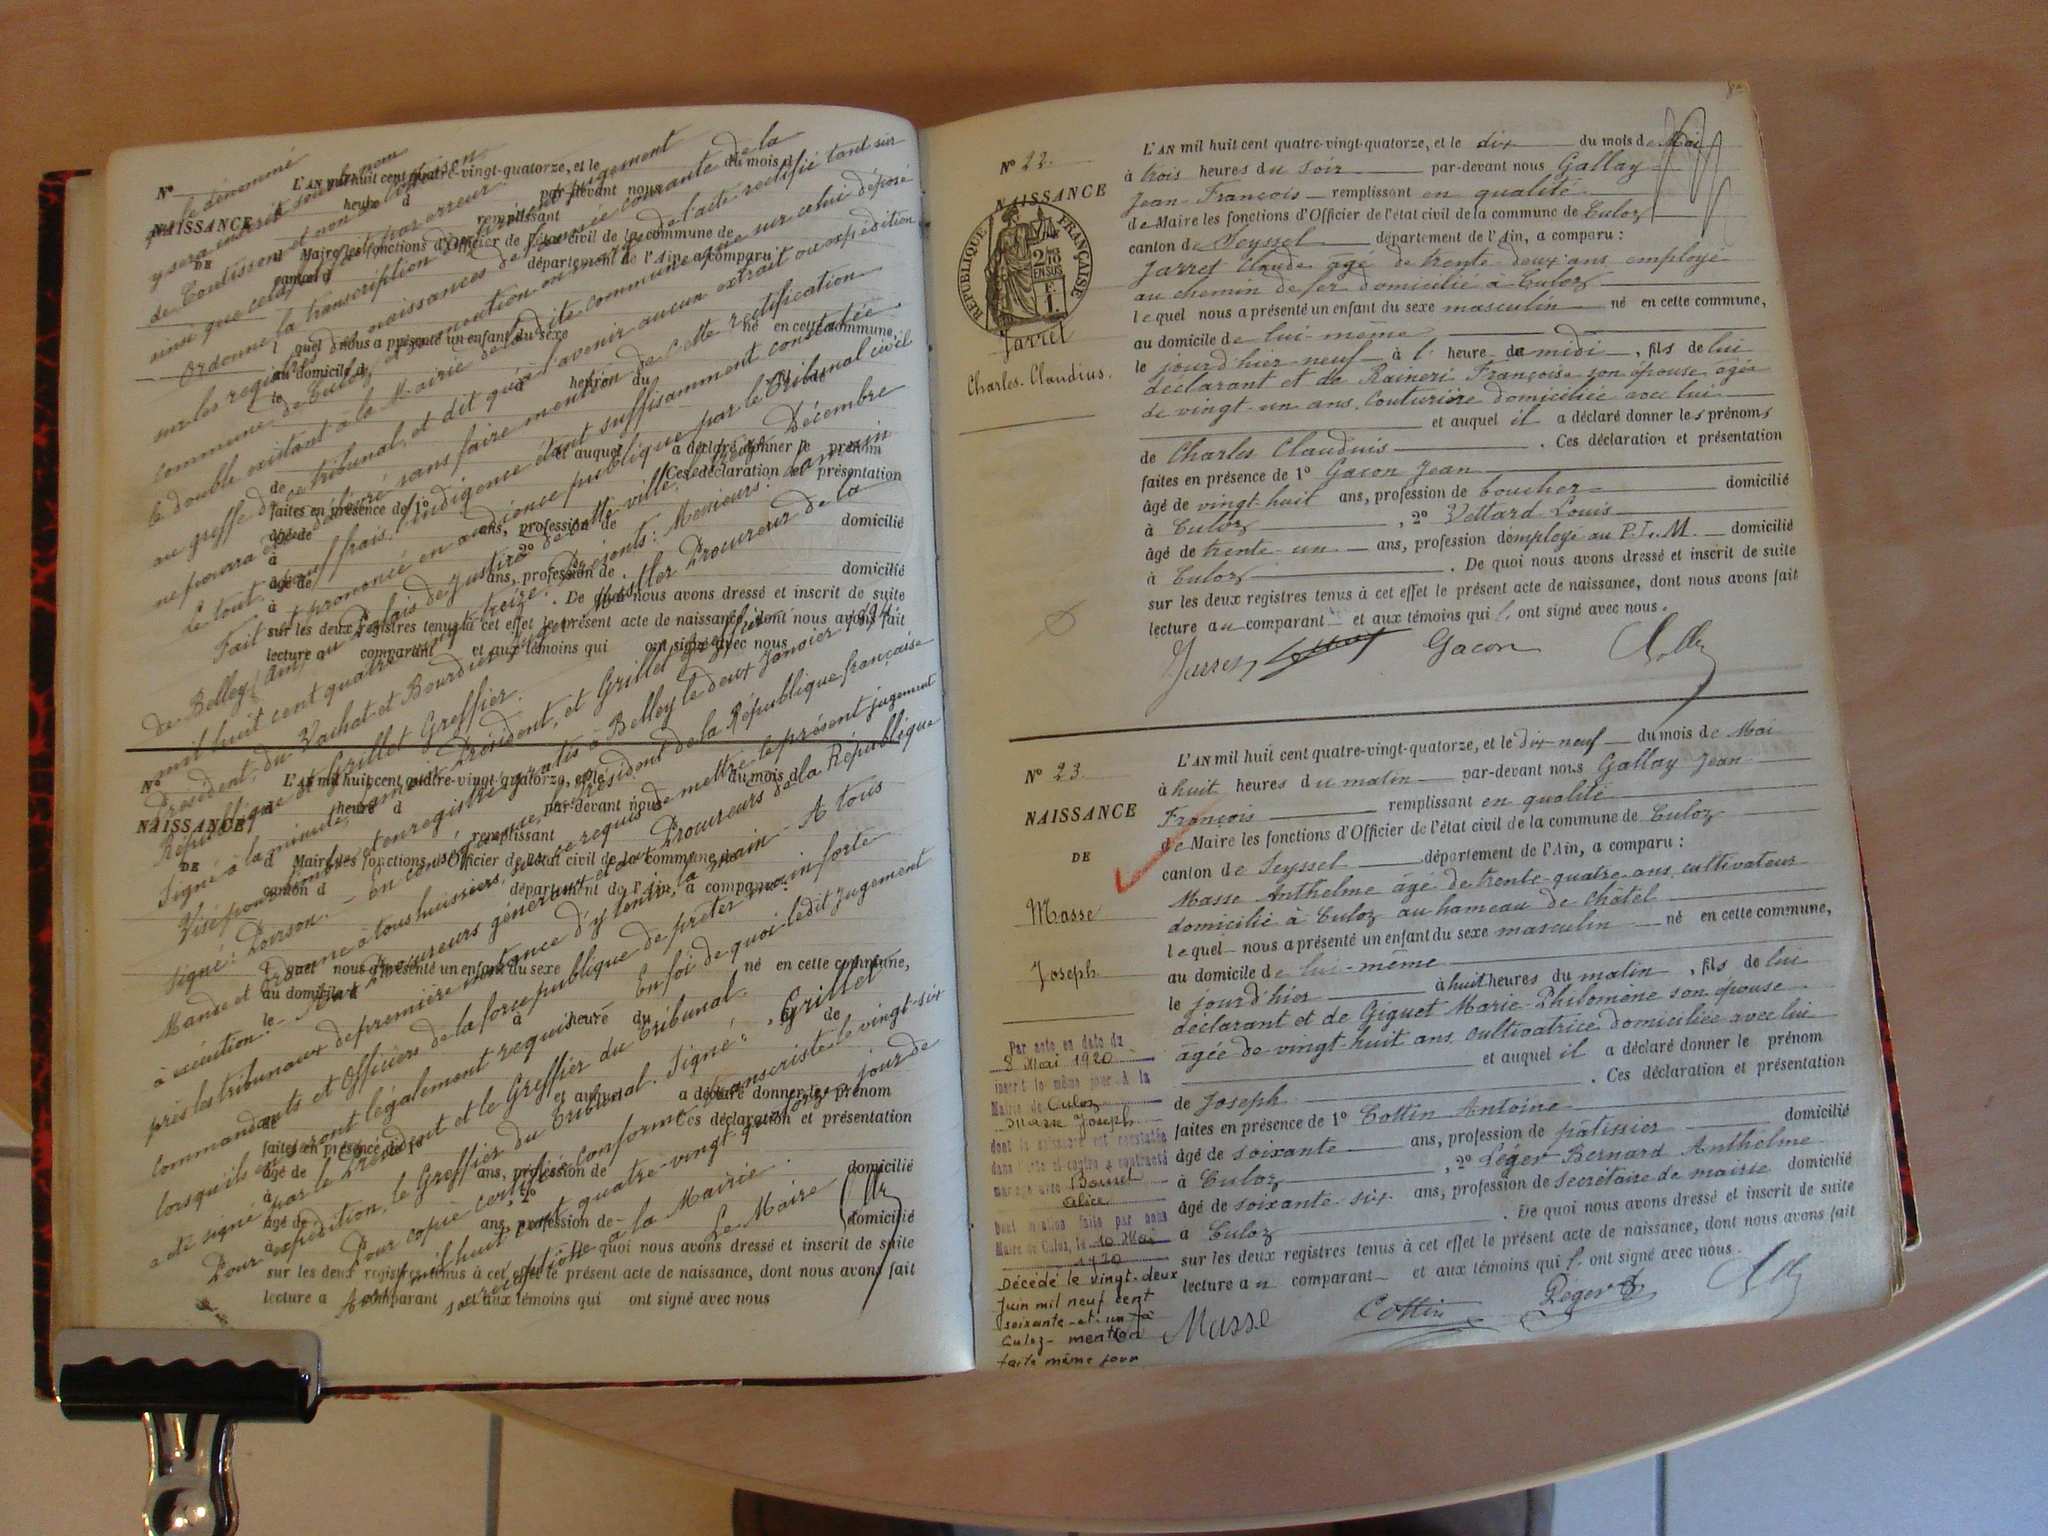 N°
NAISSANCE
DE
L'AN mil huit cent quatre-vingt-quatorze, et le du mois d
heure d par-devant nous
remplissant
Maire les fonctions d'Officier de l'état civil de la commune de
canton d département de l'Ain, a comparu
l quel nous a présenté un enfant du sexe né en cette commune,
au domicile d
le à heure du
et auquel a déclaré donner le prénom
de Ces déclaration et présentation
faites en présence de 1°
âgé de ans, profession de domicilié
à , 2°
âgé de ans, profession de domicilié
à . De quoi nous avons dressé et inscrit de suite
sur les deux registres tenus à cet effet le présent acte de naissance, dont nous avons fait
lecture a comparant et aux témoins qui ont signé avec nous
le dénommé
y sera inscrit sous le nom
de Coutissent et non
ainsi que cela par erreur
Ordonne la transcription du présent jugement
sur les registres des naissances de l'année courante de la
commune de Culoz, et mention en marge de l'acte rectifié tant sur
le double existant à la Mairie de la dite commune que sur celui déposé
au greffe de ce tribunal, et dit qu'à l'avenir aucun extrait ou expédition
ne pourra être délivré sans faire mention de cette rectification
Le tout sans frais, l'indigence étant suffisamment constatée.
Fait et prononcé en audience publique par le Tribunal civil
de Belley (Ain) au Palais de justice de cette ville, le Décembre
mil huit cent quatre-vingt-treize. Présents: Messieurs
Président, du Vachat et Bourdin Procureur de la
République et Grillet Greffier.
Signé à la minute: Président, et Grillet greffier
Visé pour timbre et enregistré gratis à Belley le deux Janvier 1894
Signé: Poirson. En conséquence le Président de la République française
Mande et Ordonne à tous huissiers, sur ce requis de mettre le présent jugement
à exécution. Aux Procureurs généraux et aux Procureurs de la République
près les tribunaux de première instance d'y tenir la main - A tous
commandants et Officiers de la force publique de prêter main forte
lorsqu'ils en seront légalement requis. En foi de quoi ledit jugement
a été signé par le Président et le Greffier du Tribunal.
Pour expédition, le Greffier du Tribunal. Signé: Grillet
Pour copie certifiée conforme transcrite le vingt-six
Avril mil huit cent quatre-vingt-quatorze jour de
sa réception à la Mairie.
Le Maire
N°
NAISSANCE
DE
L'AN mil huit cent quatre-vingt-quatorze, et le du mois d
heure d par-devant nous
remplissant
d Maire les fonctions d'Officier de l'état civil de la commune de
canton d département de l'Ain, a comparu:
l quel nous a présenté un enfant du sexe né en cette commune,
au domicile d
le à heure du , fil de
et auquel a déclaré donner le prénom
de Ces déclaration et présentation
faites en présence de 1°
âgé de ans, profession de domicilié
à , 2°
âgé de ans, profession de domicilié
à De quoi nous avons dressé et inscrit de suite
sur les deux registres tenus à cet effet le présent acte de naissance, dont nous avons fait
lecture a comparant et aux témoins qui ont signé avec nous
N° 22.
NAISSANCE
RÉPUBLIQUE FRANÇAISE
2/10
EN SUS
Jarret
Charles-Claudius.
L'AN mil huit cent quatre-vingt-quatorze, et le dix du mois de Mai
à trois heures du soir par-devant nous Gallay
Jean-François remplissant en qualité
de Maire les fonctions d'Officier de l'état civil de la commune de Culoz
canton de Seyssel département de l'Ain, a comparu :
Jarret Claude âgé de trente-deux ans employé
au chemin de fer domicilié à Culoz
lequel nous a présenté un enfant du sexe masculin né en cette commune,
au domicile de lui-même
le jourd'hier neuf à l' heure de midi , fils de lui
déclarant et de Raineri Françoise son épouse âgée
de vingt-un ans, couturière domiciliée avec lui
et auquel il a déclaré donner les prénoms
de Charles Claudius . Ces déclaration et présentation
faites en présence de 1° Gacon Jean
âgé de vingt-huit ans, profession de boucher domicilié
à Culoz , 2° Vettard Louis
âgé de trente-un ans, profession d'employé au P.L.M. domicilié
à Culoz . De quoi nous avons dressé et inscrit de suite
sur les deux registres tenus à cet effet le présent acte de naissance, dont nous avons fait
lecture au comparant et aux témoins qui ont signé avec nous.
Jarret Gacon
N° 23.
NAISSANCE
DE
Masse
Joseph
L'AN mil huit cent quatre-vingt-quatorze, et le dix-neuf du mois de Mai
à huit heures du matin par-devant nous Gallay Jean
François remplissant en qualité
de Maire les fonctions d'Officier de l'état civil de la commune de Culoz
canton de Seyssel département de l'Ain, a comparu :
Masse Anthelme âgé de trente-quatre ans, cultivateur
domicilié à Culoz au hameau de Châtel
lequel nous a présenté un enfant du sexe masculin né en cette commune,
au domicile de lui-même
le jourd'hier à huit heures du matin , fils de lui
déclarant et de Giguet Marie-Philomène son épouse
âgée de vingt-huit ans, cultivatrice domiciliée avec lui
et auquel il a déclaré donner le prénom
de Joseph . Ces déclaration et présentation
faites en présence de 1° Cottin Antoine
âgé de soixante ans, profession de pâtissier domicilié
à Culoz , 2° Léger Bernard Anthelme
âgé de soixante-six ans, profession de secrétaire de mairie domicilié
à Culoz . De quoi nous avons dressé et inscrit de suite
sur les deux registres tenus à cet effet le présent acte de naissance, dont nous avons fait
lecture au comparant et aux témoins qui ont signé avec nous.
Masse Cottin Léger B
Par acte en date du
8 Mai 1920
inscrit le même jour à la
Mairie de Culoz
Masse Joseph
dont la naissance est constatée
dans l'acte ci-contre a contracté
mariage avec
Alice
Dont mention faite par nous
Maire de Culoz, le 10 Mai
1920
Décédé le vingt-deux
Juin mil neuf cent
soixante-et-un à
Culoz - mention
faite même jour